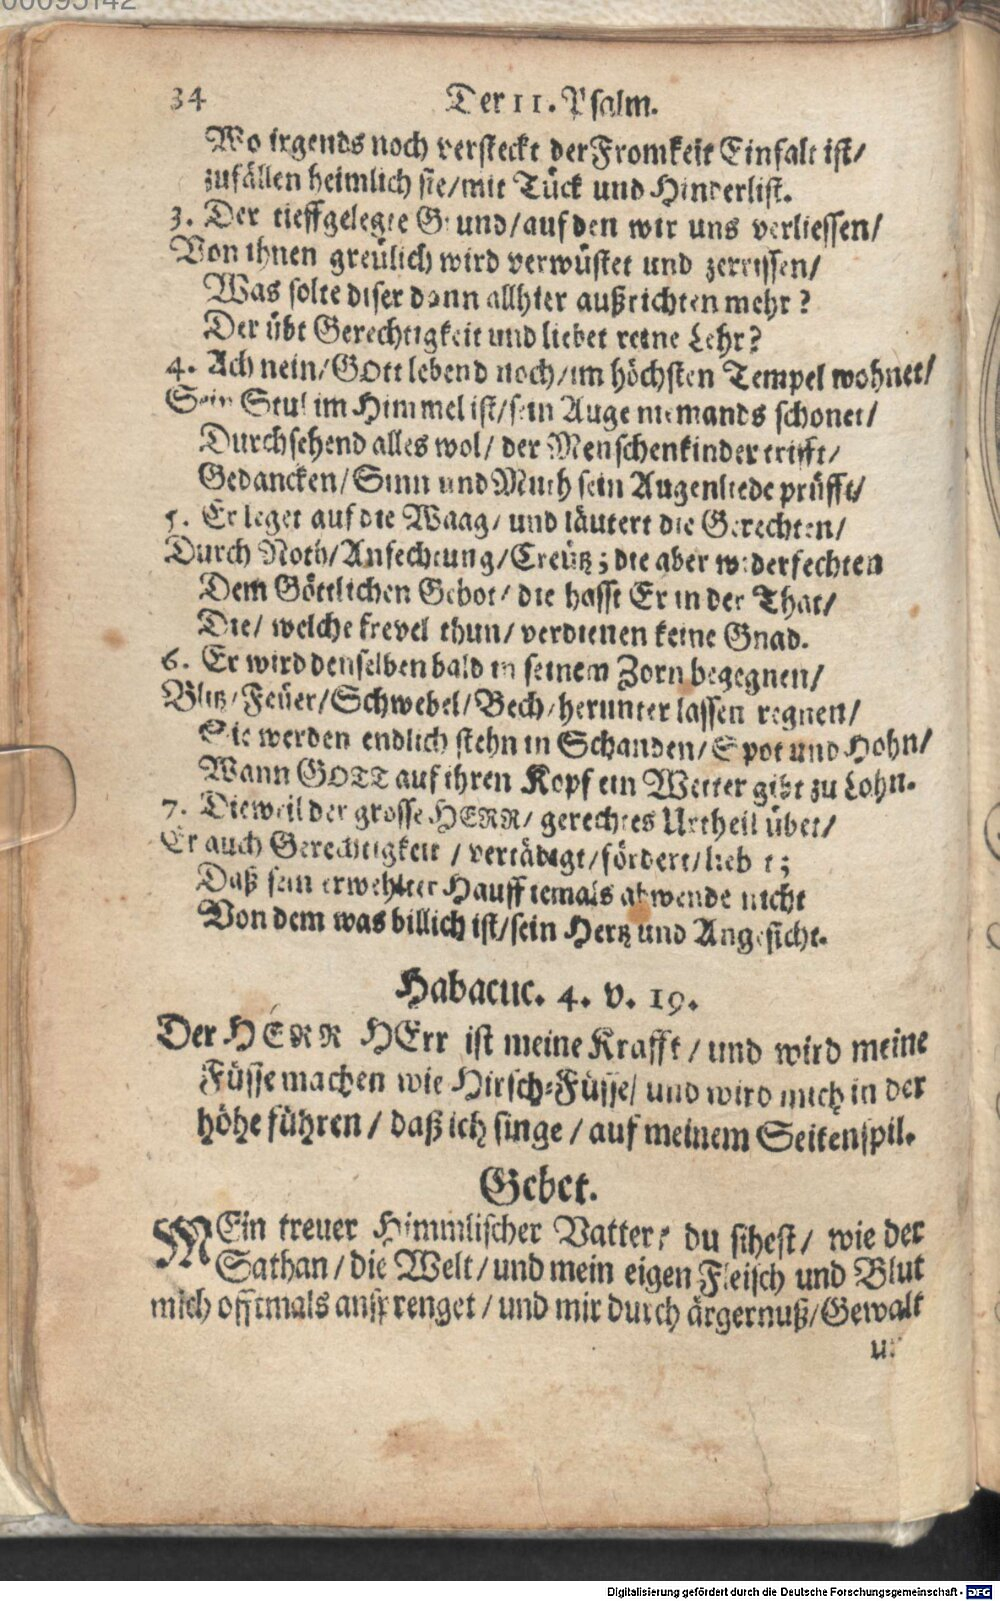 34 Der 11. Psalm.
Wo irgends noch versteckt der Fromkeit Einfalt ist/
zufällen heimlich sie/mit Tück und Hinderlist.
3. Der tieffgelegte Grund/auf den wir uns verliessen/
Von ihnen greülich wird verwüstet und zerrissen/
Was solte diser dann allhier außrichten mehr?
Der übt Gerechtigkeit und liebet reine Lehr?
4. Ach nein/GOtt lebend noch/im höchsten Tempel wohnet/
Sein Stul im Himmel ist/sein Auge niemands schonet/
Durchsehend alles wol/ der Menschenkinder trifft/
Gedancken/Sinn und Muth sein Augenliede prüfft/
5. Er leget auf die Waag/ und läutert die Gerechten/
Durch Noth/Anfechtung/Creütz; die aber widerfechten
Dem Göttlichen Gebot/ die hasst Er in der That/
Die/ welche frevel thun/ verdienen keine Gnad.
6. Er wird denselben bald in seinem Zorn begegnen/
Blitz/Feüer/Schwebel/Bech/herunter lassen regnen/
Sie werden endlich stehn in Schanden/Spot und Hohn/
Wann GOTT auf ihren Kopf ein Wetter gibt zu Lohn.
7. Dieweil der grosse HERR/ gerechtes Urtheil übet/
Er auch Gerechtigkeit / vertädigt/fördert/liebet;
Daß sein erwehlter Hauff iemals abwende nicht
Von dem was billich ist/sein Hertz und Angesicht.
Habacuc. 4. v. 19.
Der HERR HErr ist meine Krafft / und wird meine
Füsse machen wie Hirsch-Füsse/ und wird mich in der
höhe führen / daß ich singe / auf meinem Seitenspil.
Gebet.
MEin treuer Himmlischer Vatter; du sihest/ wie der
Sathan / die Welt / und mein eigen Fleisch und Blut
mich offtmals ansprenget / und mir durch ärgernuß/Gewalt
Digitalisierung gefördert durch die Deutsche Forschungsgemeinschaft - DFG